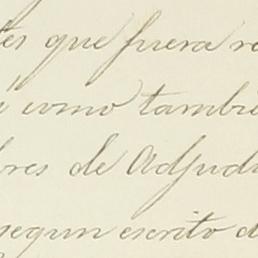 tes que fuera re
i como tambie
bres de Adjudi
segun escrito d